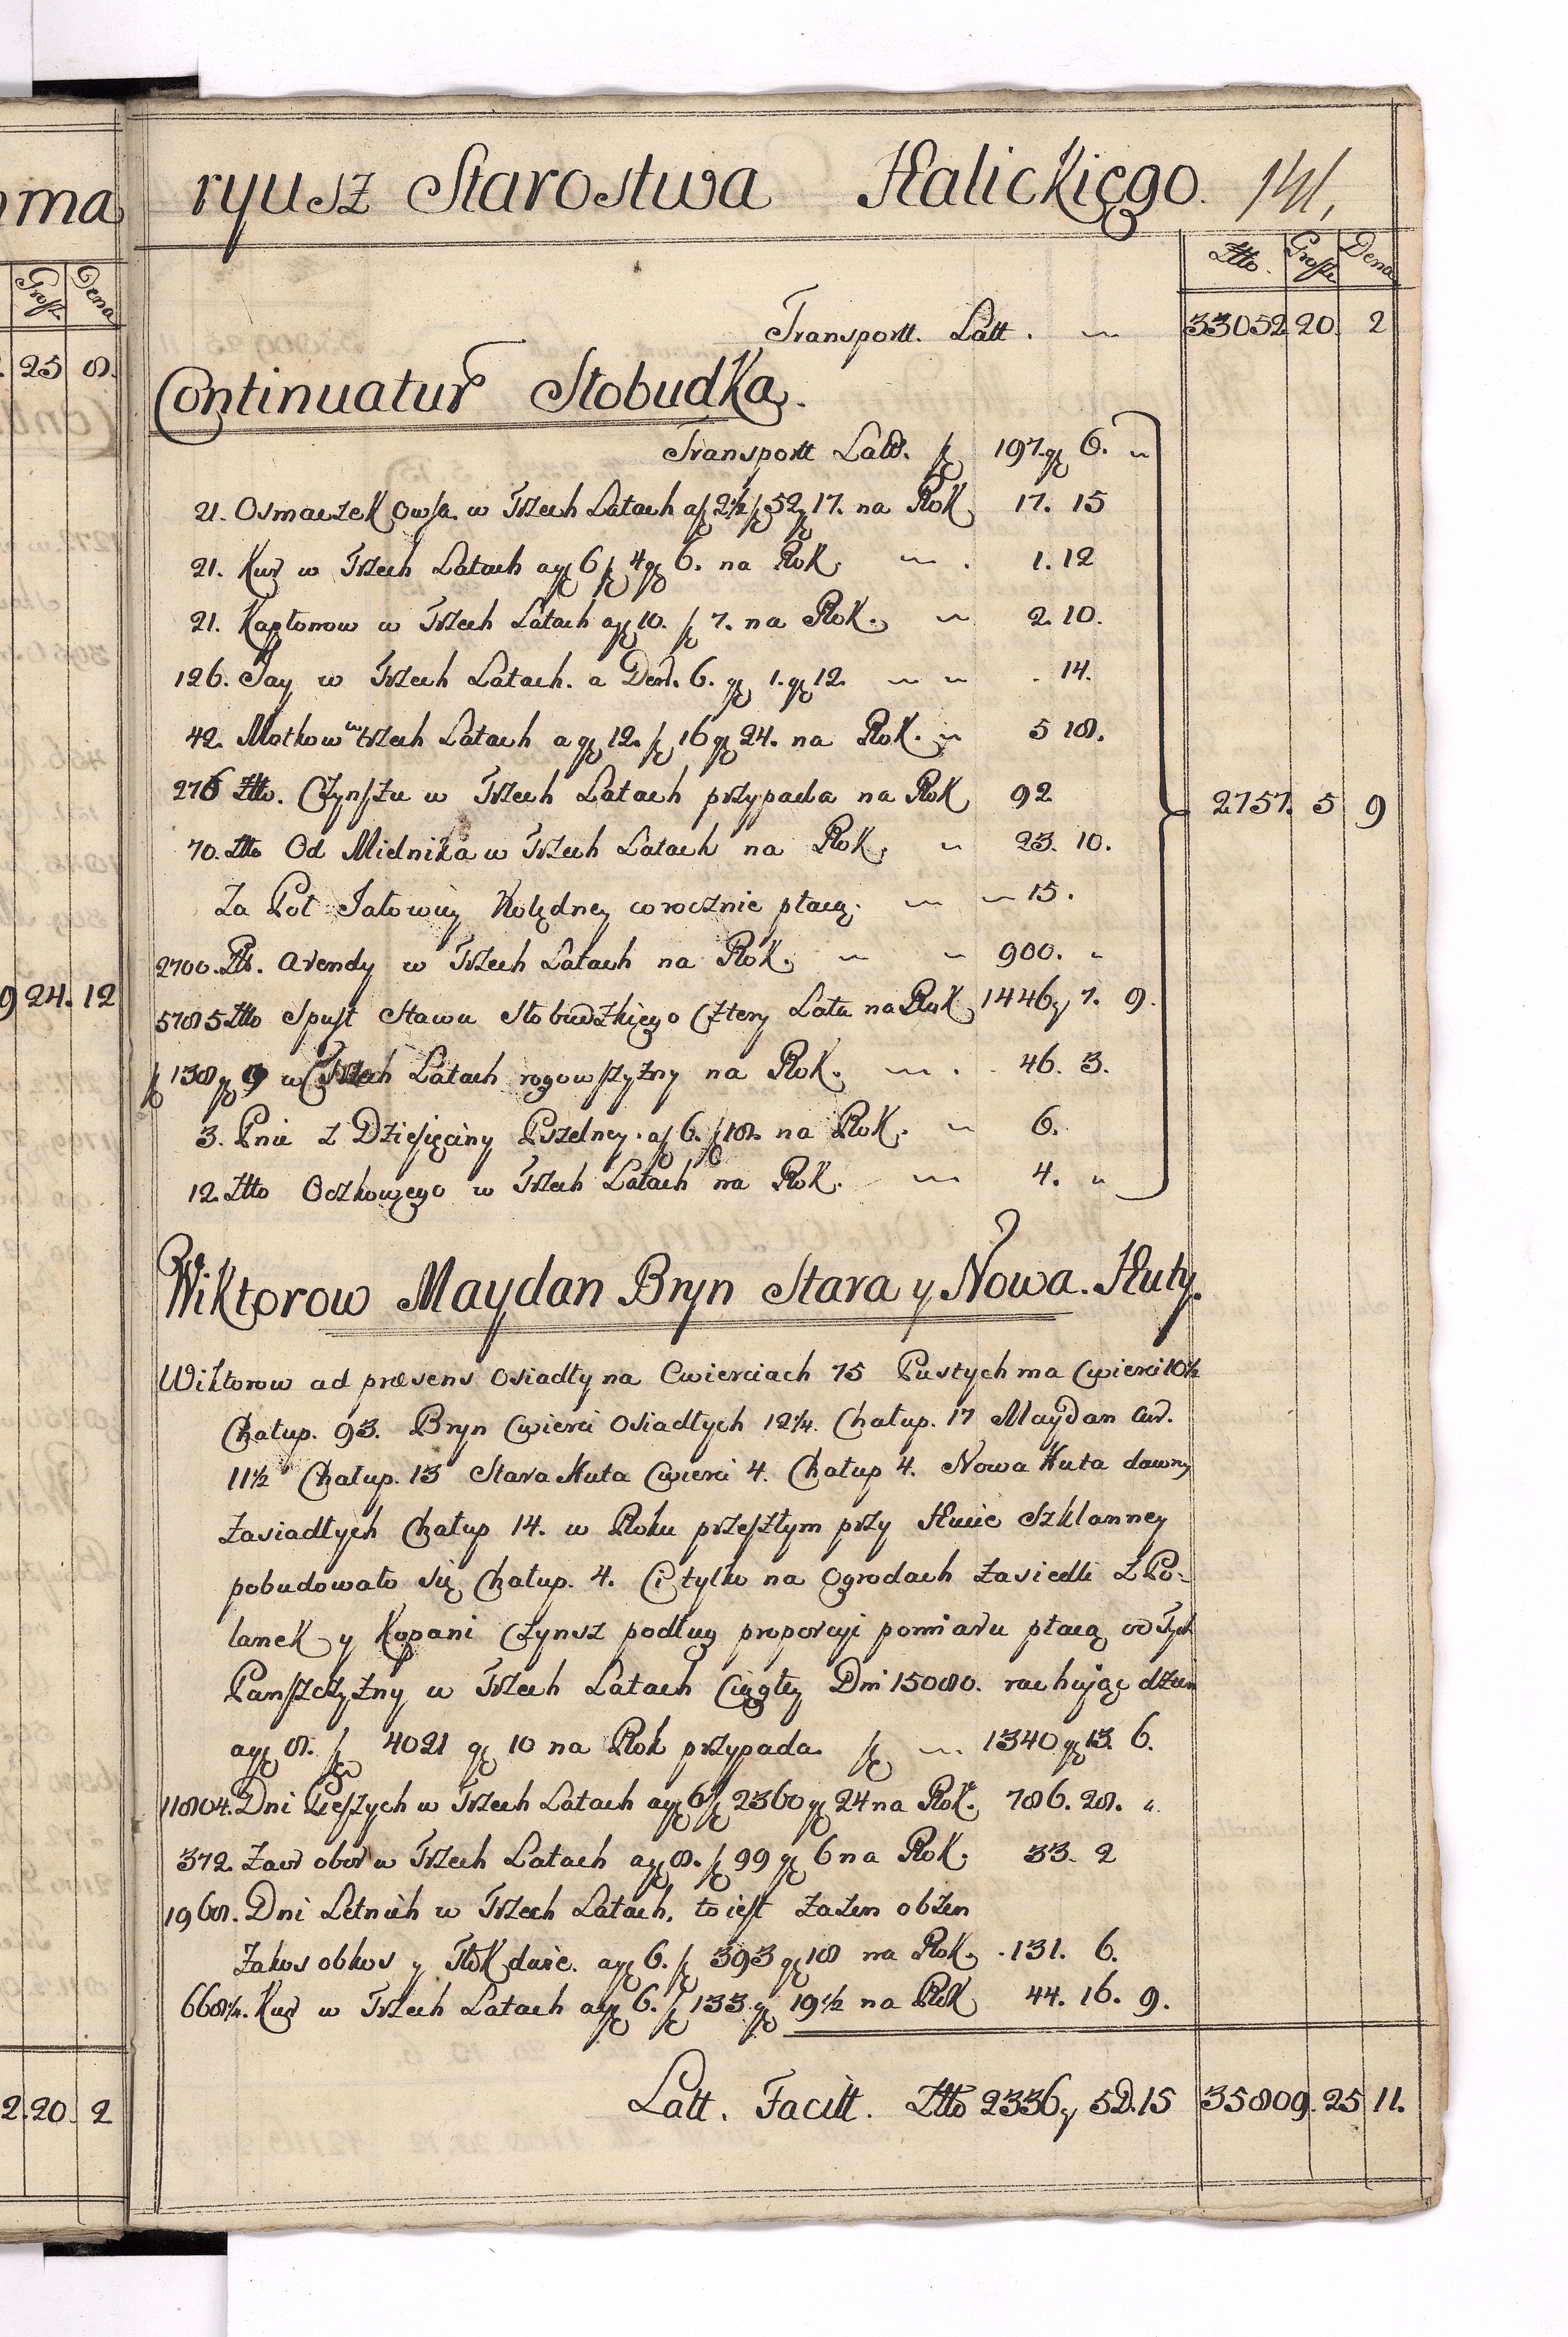 ma
Grosz. Dena
25 8.
9 24. 12
2. 20. 2
ryusz Starostwa Halickiego. 141,
Ztto. Grosze Dena
Transportt. Latt. 33052. 20. 2
Continuatur Słobudka.
Transportt Latt. f 197. g 6.
21. Osmaczek Owsa w Trzech Latach af 2½ f 52 g 17. na Rok 17. 15
21. Kur w Trzech Latach ag 6 f 4 g 6. na Rok. 1. 12
21. Kapłonow w Trzech Latach ag 10. f 7. na Rok. 2. 10.
126. Jay w Trzech Latach. a Den. 6. g 1. g 12. 14.
42. Motkow w trzech Latach a g 12. f 16 g 24. na Rok. 5 18.
276 Ztto. Czynszu w Trzech Latach przypada na Rok 92
2757. 5 9
70. Ztto Od Mielnika w Trzech Latach na Rok. 23. 10.
Za Poł Jałowicy Kolędney corocznie płacą. 15.
2700. Zlt. Arendy w Trzech Latach na Rok. 900.
5785 Ztto Spust Stawu Słobudzkiego Cztery Lata na Rok 1446 g 7. 9.
f 138 g 9 w Trzech Latach rogowszyzny na Rok. 46. 3.
3. Pnie z Dziesięciny Pszelney. af 6. f 18. na Rok. 6.
12. Ztto Oczkowego w Trzech Latach na Rok. 4.
Wiktorow Maydan Bryn Stara y Nowa. Huty.
Wiktorow ad præsens Osiadły na Cwierciach 75 Pustych ma Cwierci 10½
Chałup. 93. Bryn Cwierci Osiadłych 12¼. Chałup. 17 Maydan Cw.
11½ Chałup. 13 Stara Huta Cwierci 4. Chałup 4. Nowa Huta dawny
Zasiadłych Chałup 14. w Roku przeszłym przy Hucie Szklanney
pobudowało się Chałup. 4. Ci tylko na Ogrodach Zasiedli z Po-
lanek y Kopani Czynsz podług proporcyi pomiaru płacą od Tych
Panszczyzny w Trzech Latach Ciągłey Dni 15080. rachując dzien
ag 8. f 4021 g 10 na Rok przypada f 1340 g 13. 6.
11804. Dni Pieszych w Trzech Latach ag 6 f 2360 g 24 na Rok. 786. 28.
372. Zaor obor w Trzech Latach ag 8. f 99 g 6 na Rok. 33. 2
1968. Dni Letnich w Trzech Latach, to iest Zazen obzen
Zakos obkos y Tłok dwie. ag 6. f 393 g 18 na Rok. 131. 6.
668¼. Kur w Trzech Latach ag 6. f 133 g 19½ na Rok 44. 16. 9.
Latt. Facitt. Ztto 2336 g 5 D. 15 35809. 25 11.